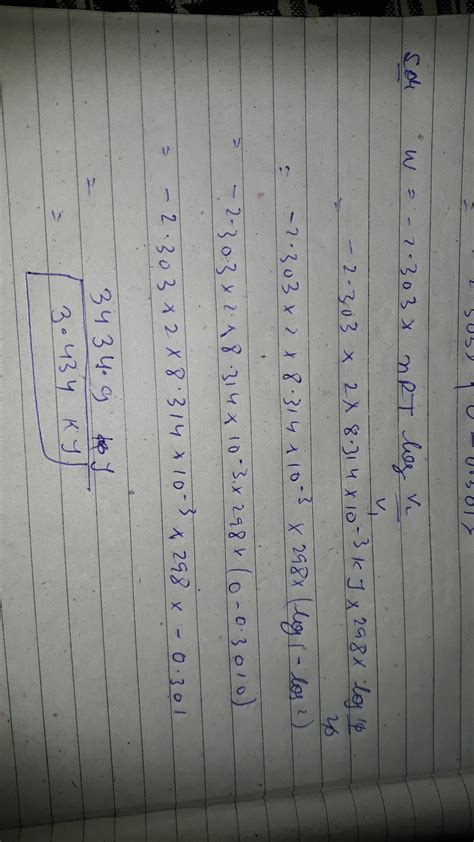 Soln W = - 2.303 × nRT log V2/V1
= - 2.303 × 2 × 8.314 × 10-3 KJ × 298 × log
= - 2.303 × 2 × 8.314 × 10-3 × 298 × (log 1 - log 2)
= - 2.303 × 2 × 8.314 × 10-3 × 298 × (0 - 0.3010)
= - 2.303 × 2 × 8.314 × 10-3 × 298 × - 0.301
= 3434.9 J
= 3.434 KJ